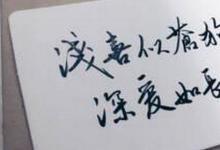 浅喜似苍
深爱如长